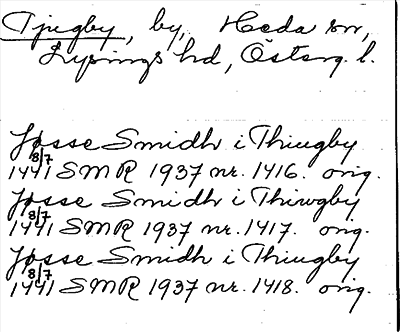 Tjugby, by, Heda sn,
Lysings hd, Österg. l.
Jösse Smidh i Thiugby
8/7 1441 SMR 1937 nr. 1416. orig.
Jösse Smidh i Thiwgby
8/7 1441 SMR 1937 nr. 1417. orig.
Jösse Smidh i Thiugby
8/7 1441 SMR 1937 nr. 1418. orig.